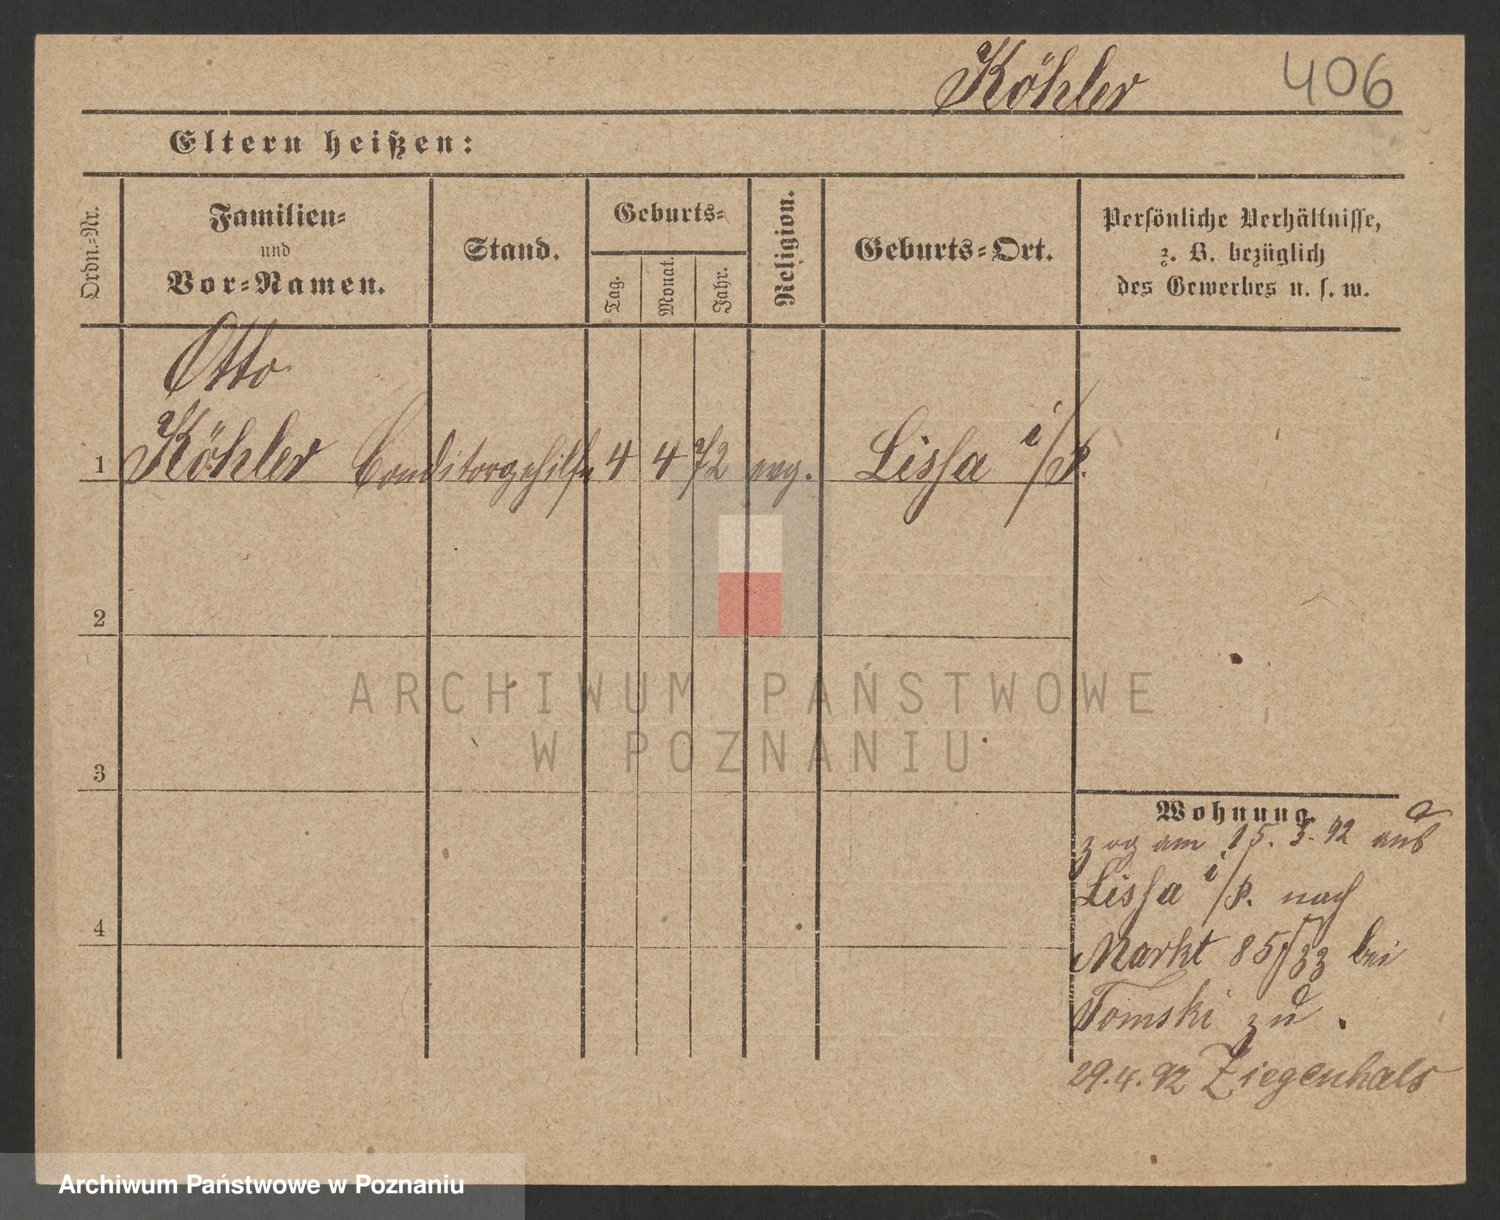 Köhler 406
Eltern heißen:
Ordn.-Nr.
Familien-
und
Vor-Namen.
Stand.
Geburts-
Tag.
Monat.
Jahr.
Religion.
Geburts-Ort.
Persönliche Verhältnisse,
z. B. bezüglich
des Gewerbes u. s. w.
Otto
1 Köhler Conditorgehilfe 4 4 72 evg. Lissa i/P.
2
ARCHIWUM PAŃSTWOWE
W POZNANIU
3
Wohnung.
zog am 15. 3. 92 aus
Lissa i/P. nach
4
Markt 85 bei
Tomski zu.
29.4.92 Ziegenhals
Archiwum Państwowe w Poznaniu